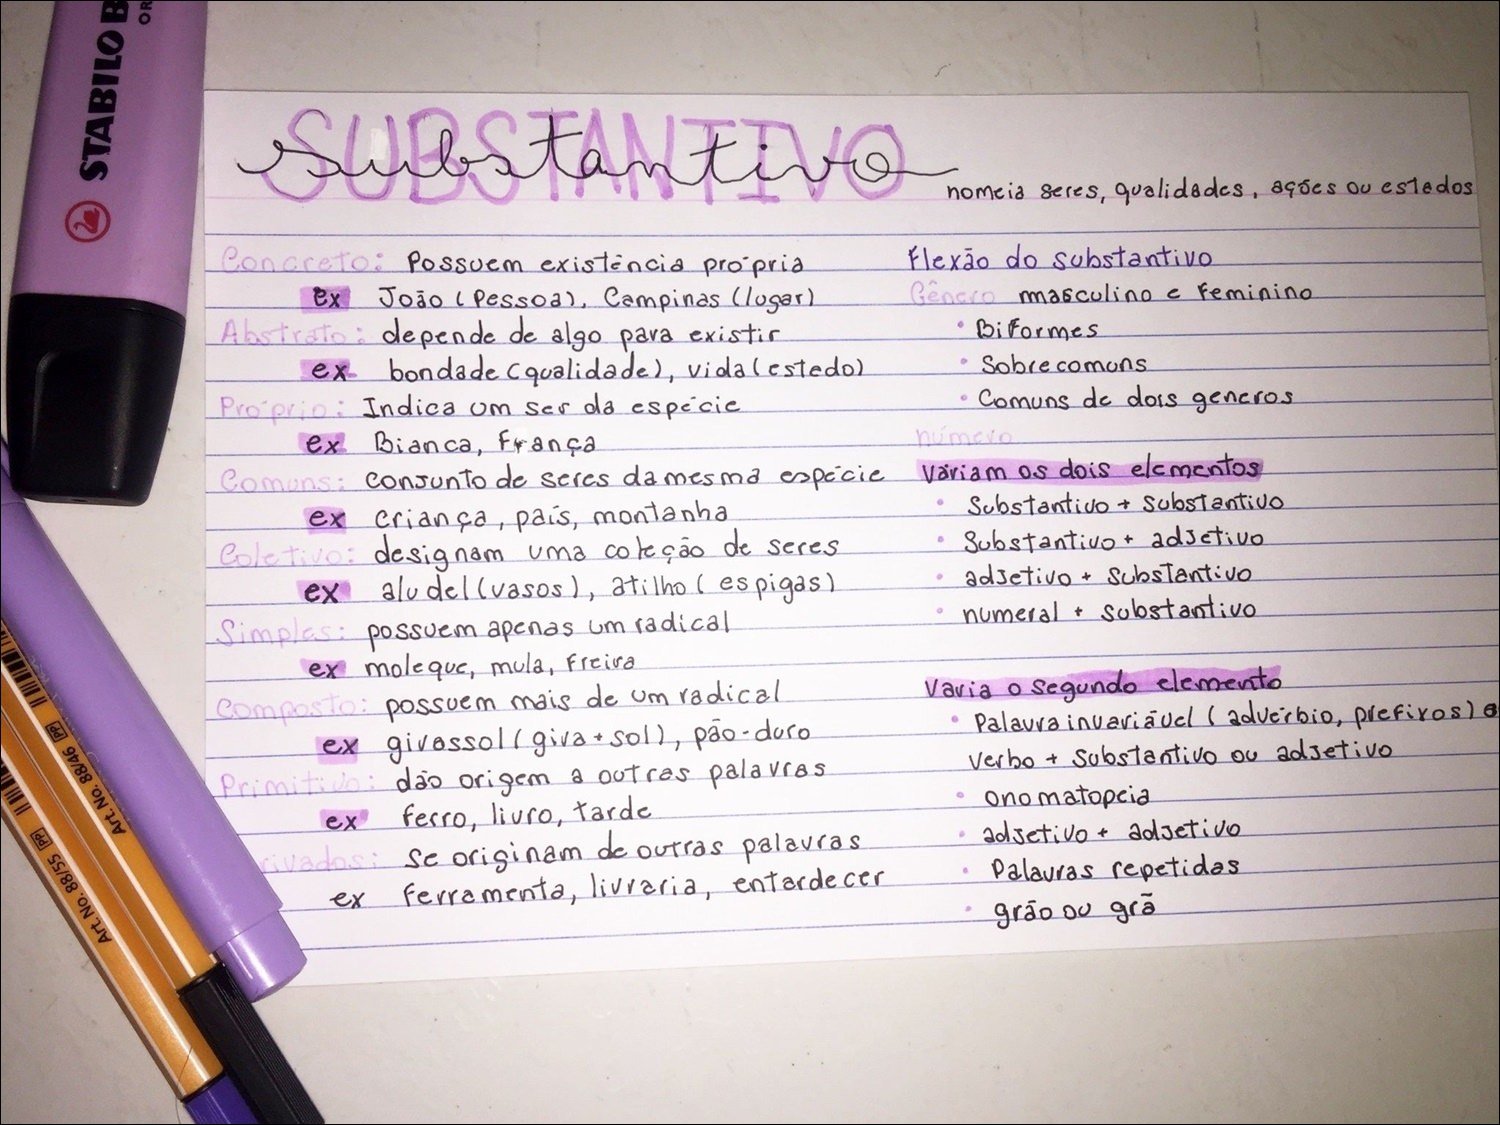 STABILO B
OR
SUBSTANTIVO
Substantivo
nomeia seres, qualidades, ações ou estados
Concreto: Possuem existência própria
ex João (Pessoa), Campinas (lugar)
Abstrato: depende de algo para existir
ex bondade (qualidade), vida (estado)
Próprio: Indica um ser da espécie
ex Bianca, França
Comuns: conjunto de seres da mesma espécie
ex criança, país, montanha
Coletivo: designam uma coleção de seres
ex aludel (vasos), atilho (espigas)
Simples: possuem apenas um radical
ex moleque, mula, freira
Composto: possuem mais de um radical
ex girassol (gira + sol), pão-duro
Primitivo: dão origem a outras palavras
ex ferro, livro, tarde
rivados: se originam de outras palavras
ex ferramenta, livraria, entardecer
Flexão do substantivo
Gênero masculino e feminino
• Biformes
• Sobrecomuns
• Comuns de dois generos
número
Variam os dois elementos
• Substantivo + substantivo
• Substantivo + adjetivo
• adjetivo + substantivo
• numeral + substantivo
Varia o segundo elemento
• Palavra invariável (advérbio, prefixos) o
verbo + substantivo ou adjetivo
• onomatopeia
• adjetivo + adjetivo
• Palavras repetidas
• grão ou grã
Art. No. 88/46 PP
Art. No. 88/55 PP